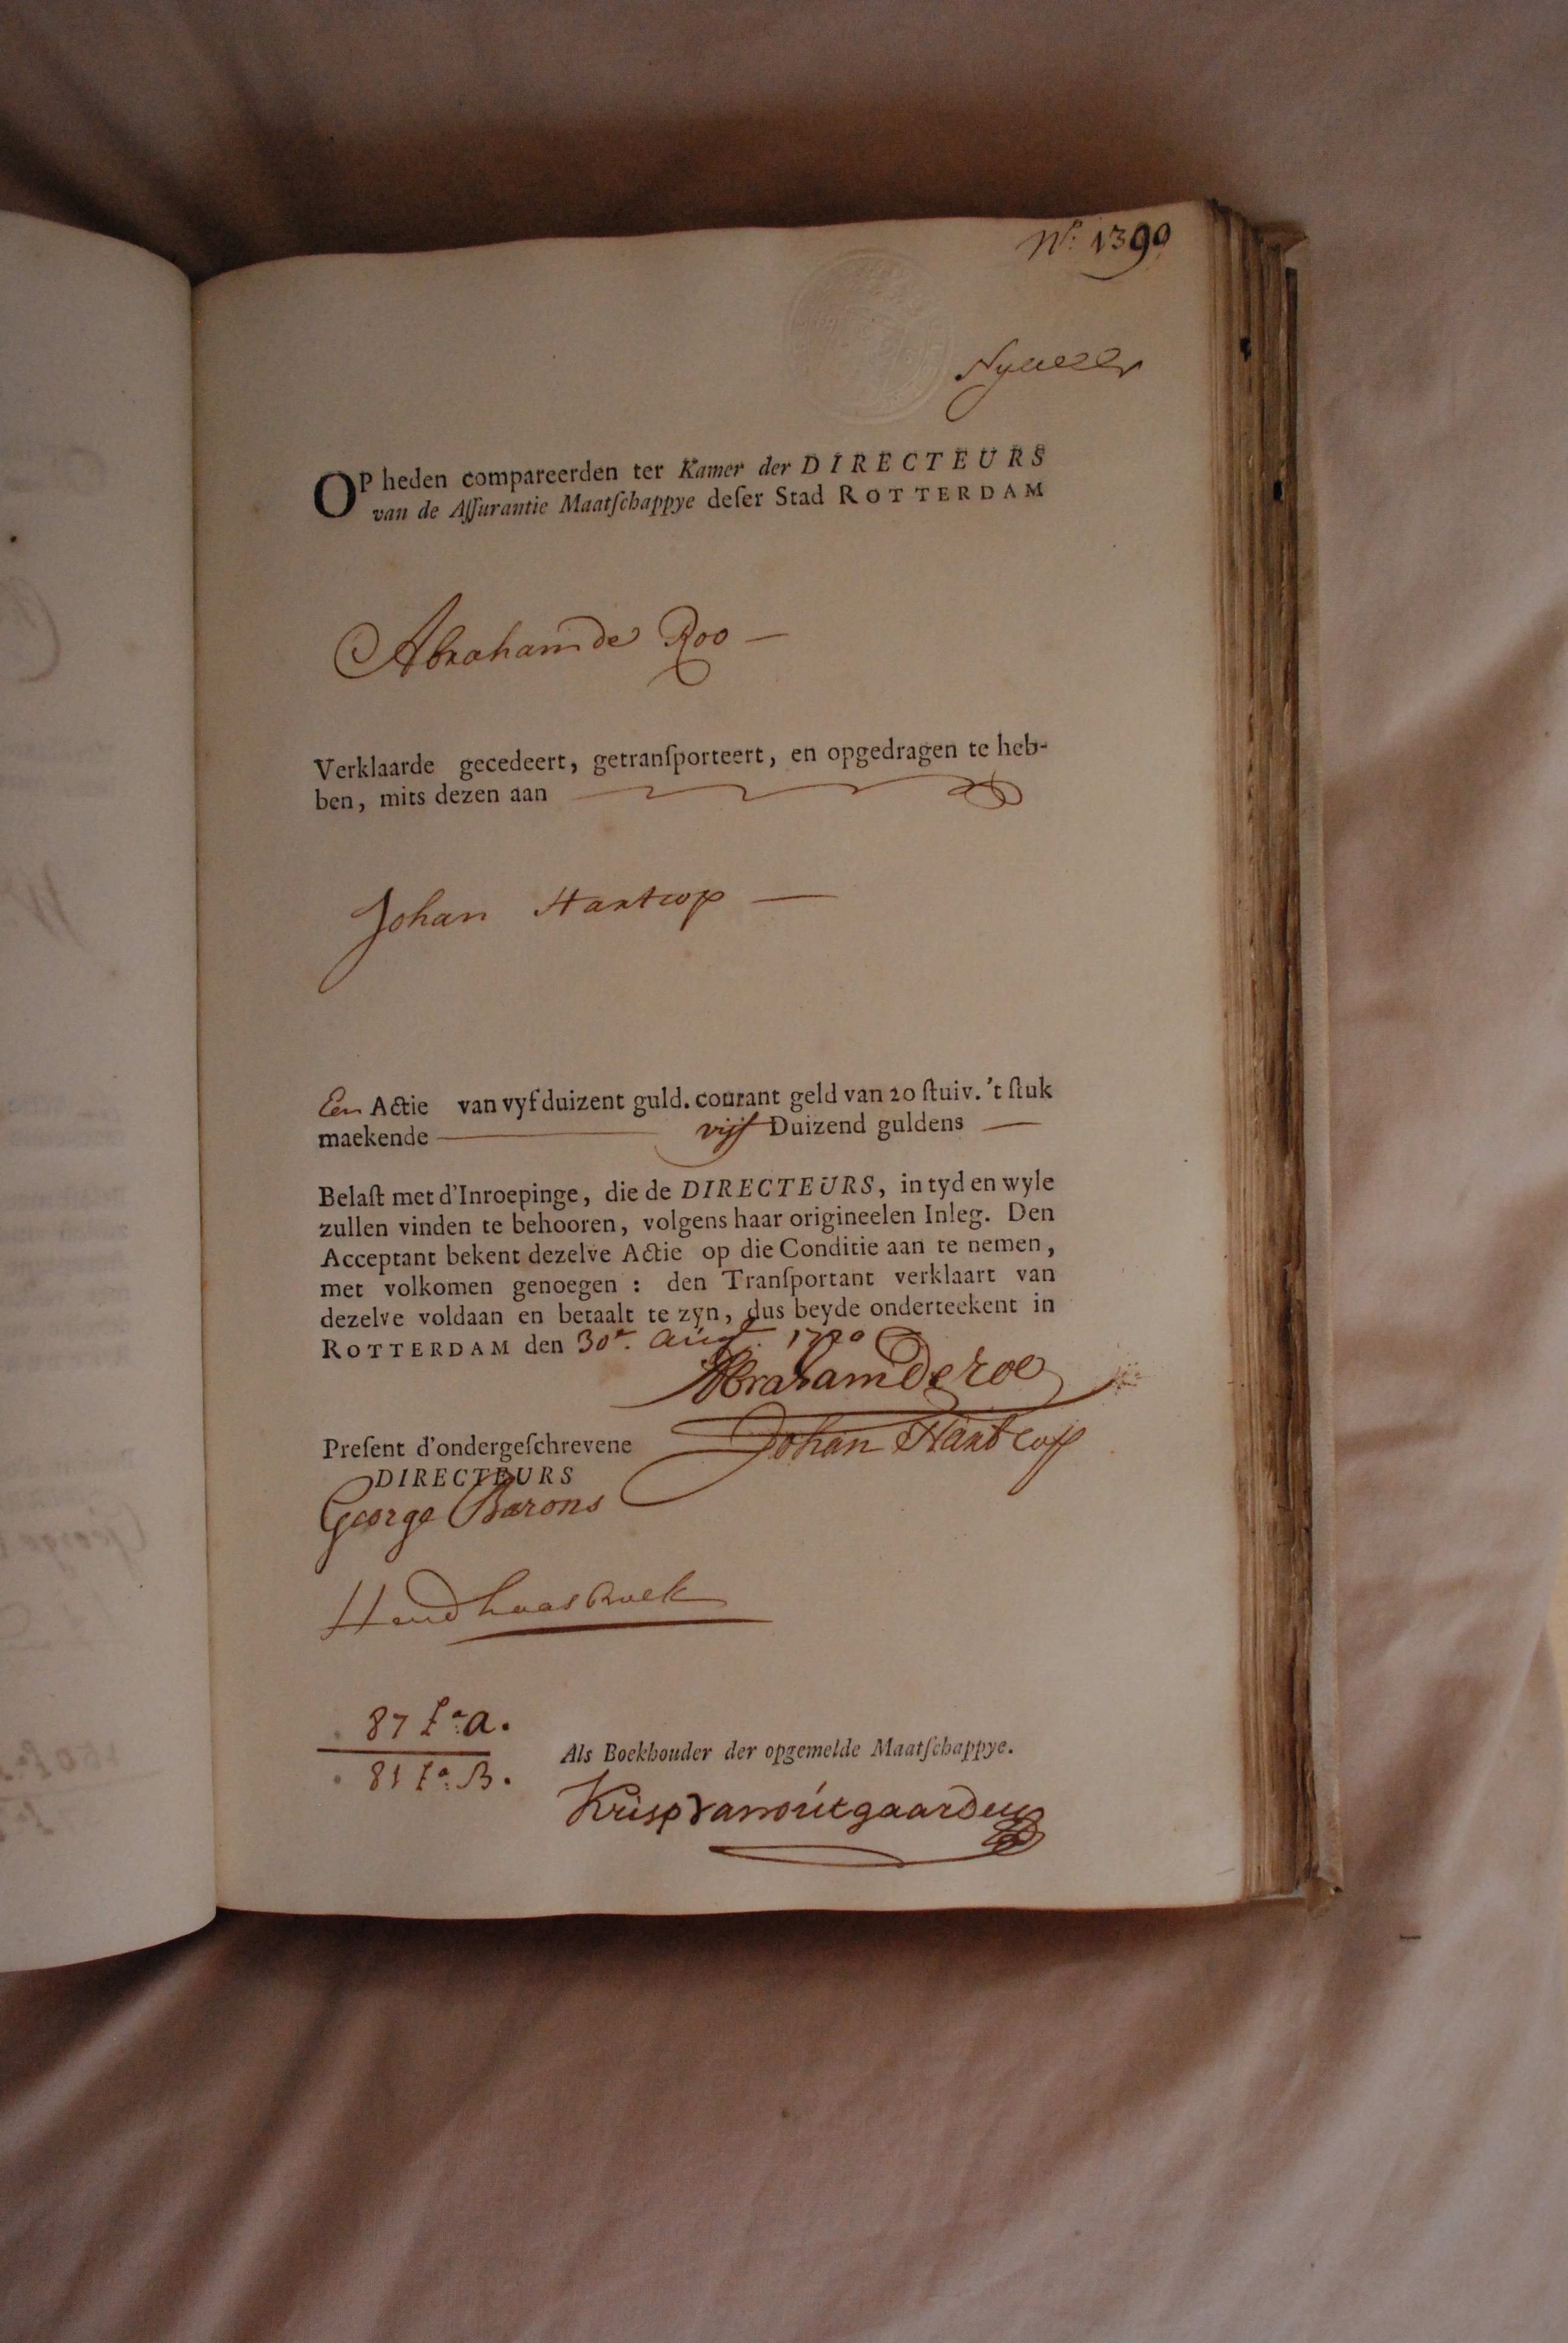 N.o 1390
OP heden compareerden ter Kamer der DIRECTEURS
van de Aſſurantie Maatſchappye deſer Stad ROTTERDAM
Abraham de Roo —
Verklaarde gecedeert, getranſporteert, en opgedragen te heb-
ben, mits dezen aan
Johan Hartcop —
Een Actie van vyf duizent guld. courant geld van 20 ſtuiv. 't ſtuk
maekende — vijf Duizend guldens —
Belaſt met d'Inroepinge, die de DIRECTEURS, in tyd en wyle
zullen vinden te behooren, volgens haar origineelen Inleg. Den
Acceptant bekent dezelve Actie op die Conditie aan te nemen,
met volkomen genoegen : den Tranſportant verklaart van
dezelve voldaan en betaalt te zyn, dus beyde onderteekent in
ROTTERDAM den 30e. Augt. 1720
Abraham De roo
Johan Hartcop
Preſent d'ondergeſchrevene
DIRECTEURS
George Barons
87 fo. A.
81 fo. B.
Als Boekhouder der opgemelde Maatſchappye.